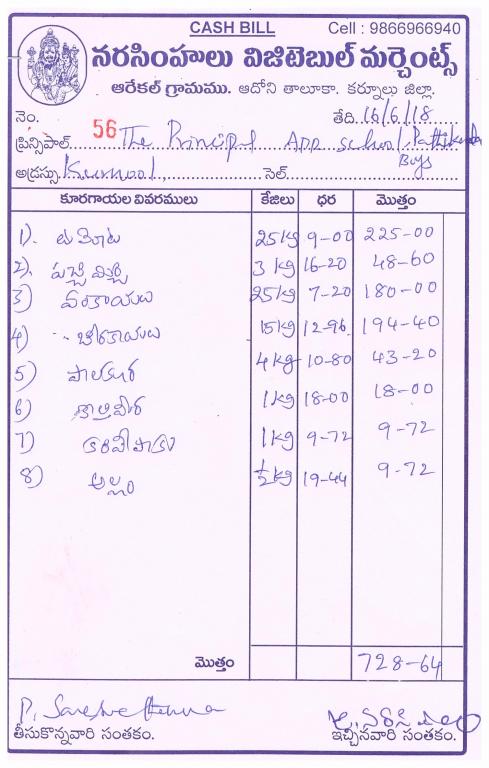 CASH BILL Cell : 9866966940
నరసింహులు విజిటెబుల్ మర్చెంట్స్
ఆరేకల్ గ్రామము. ఆదోని తాలూకా. కర్నూలు జిల్లా.
నెం. 56 తేది. 16/6/18
ప్రిన్సిపాల్. The Principal App School Pattikonda
Boys
అడ్రస్సు Kurnool, సెల్
కూరగాయల వివరములు కేజీలు ధర మొత్తం
1). టమోట 25 kg 9-00 225-00
2). పచ్చి మిర్చి 3 kg 16-20 48-60
3) వంకాయలు 25 kg 7-20 180-00
4) బీరకాయలు 15 kg 12-96 194-40
5) పాలకూర 4 kg 10-80 43-20
6) కొత్తిమీర 1 kg 18-00 18-00
7) కరివేపాకు 1 kg 9-72 9-72
8) అల్లం ½ kg 19-44 9-72
మొత్తం 728-64
తీసుకొన్నవారి సంతకం. ఇచ్చినవారి సంతకం.